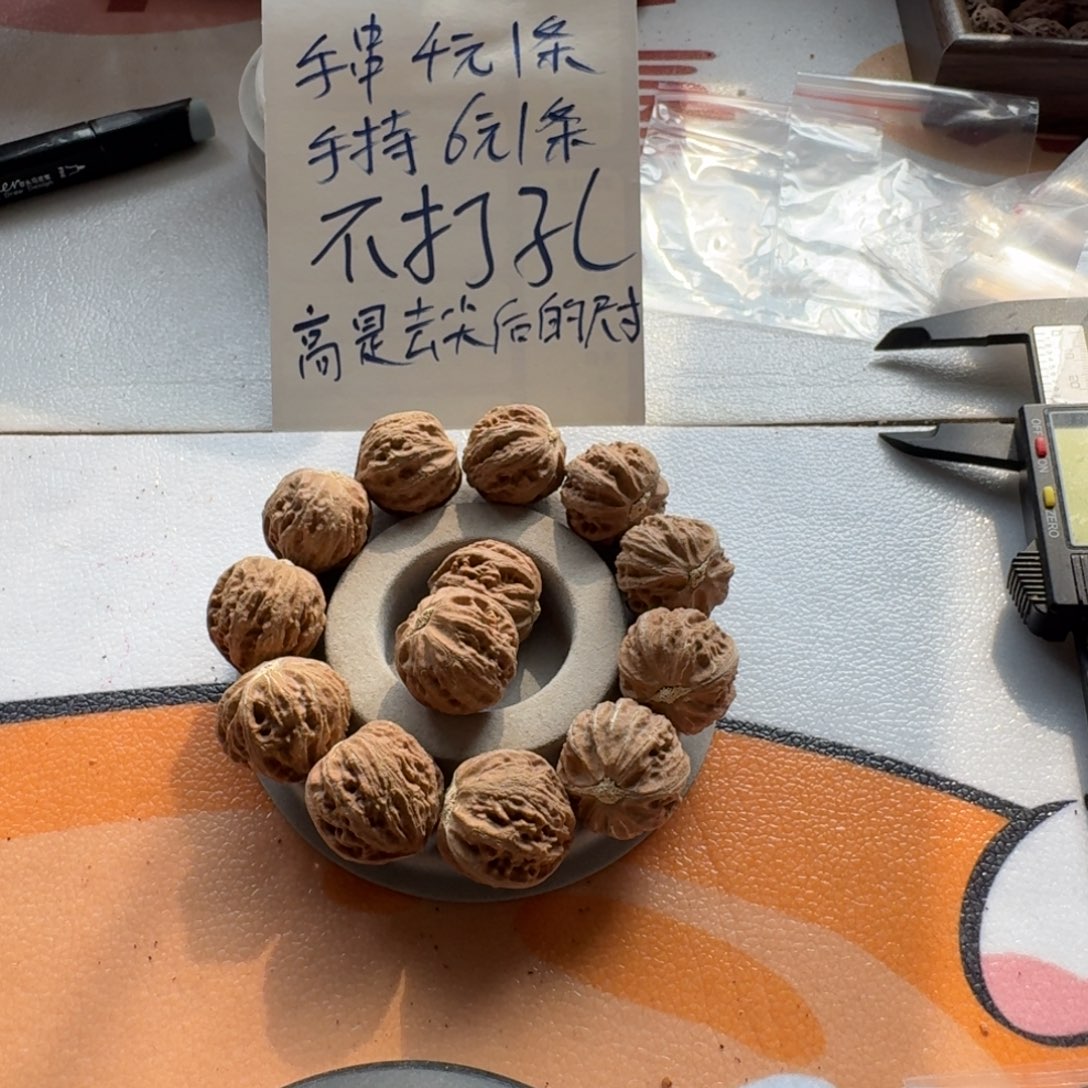 手串 4元1条
手持 6元1条
不打孔
高是去尖后的尺寸
Draw Design
OFF
ON
ZERO